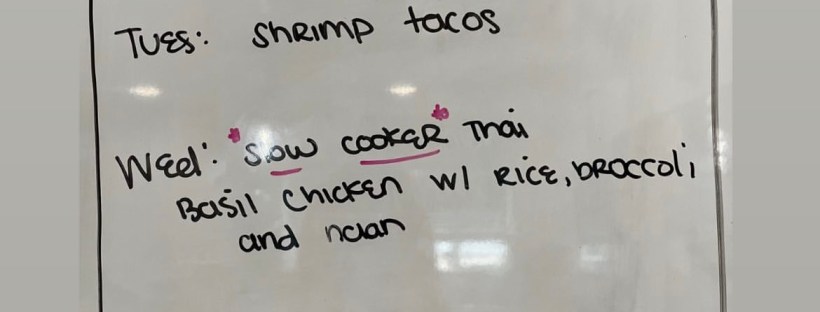 Tues: Shrimp tacos
Wed: *Slow cooker* Thai
Basil Chicken w/ Rice, broccoli
and naan